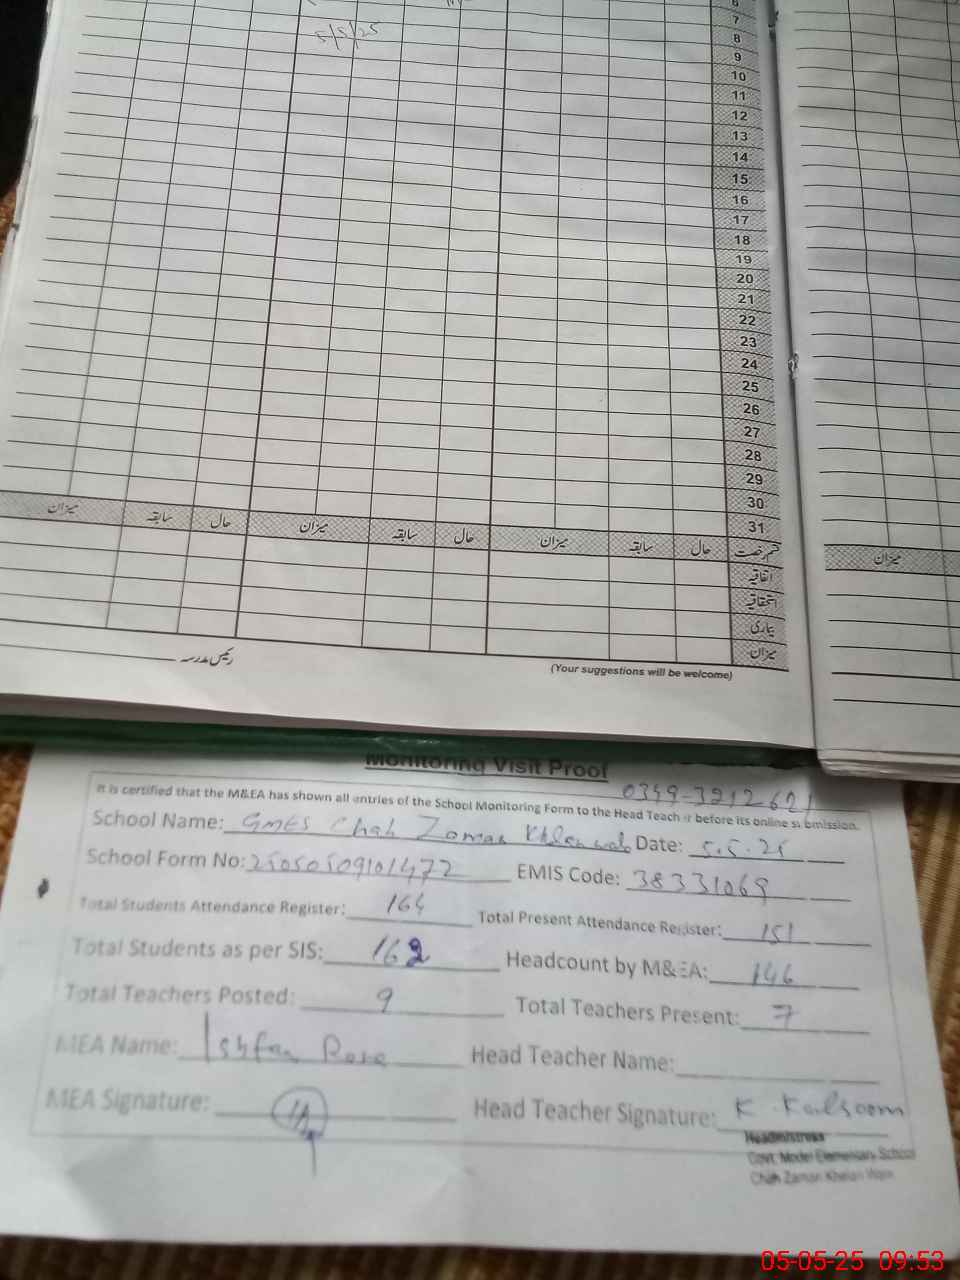 6
7
5/5/25
8
9
10
11
12
13
14
15
16
17
18
19
20
21
22
23
24
25
26
27
28
29
30
31
میزان سابقہ حال میزان سابقہ حال میزان سابقہ حال قسم رخصت
میزان
اتفاقیہ
استحقاقیہ
بیماری
میزان
رئیس مدرسہ
(Your suggestions will be welcome)
Monitoring Visit Proof
0349-3212621
It is certified that the M&EA has shown all entries of the School Monitoring Form to the Head Teacher before its online submission.
School Name: GMES Chah Zaman Date: 5.5.25
School Form No: 25050509101472 EMIS Code: 38331069
Total Students Attendance Register: 164 Total Present Attendance Register: 151
Total Students as per SIS: 162 Headcount by M&EA: 146
Total Teachers Posted: 9 Total Teachers Present: 7
MEA Name: Head Teacher Name:
MEA Signature: Head Teacher Signature: K. Kalsoom
Headmistress
Govt. Model Elementary School
Chah Zaman Khelan Wala
05-05-25 09:53